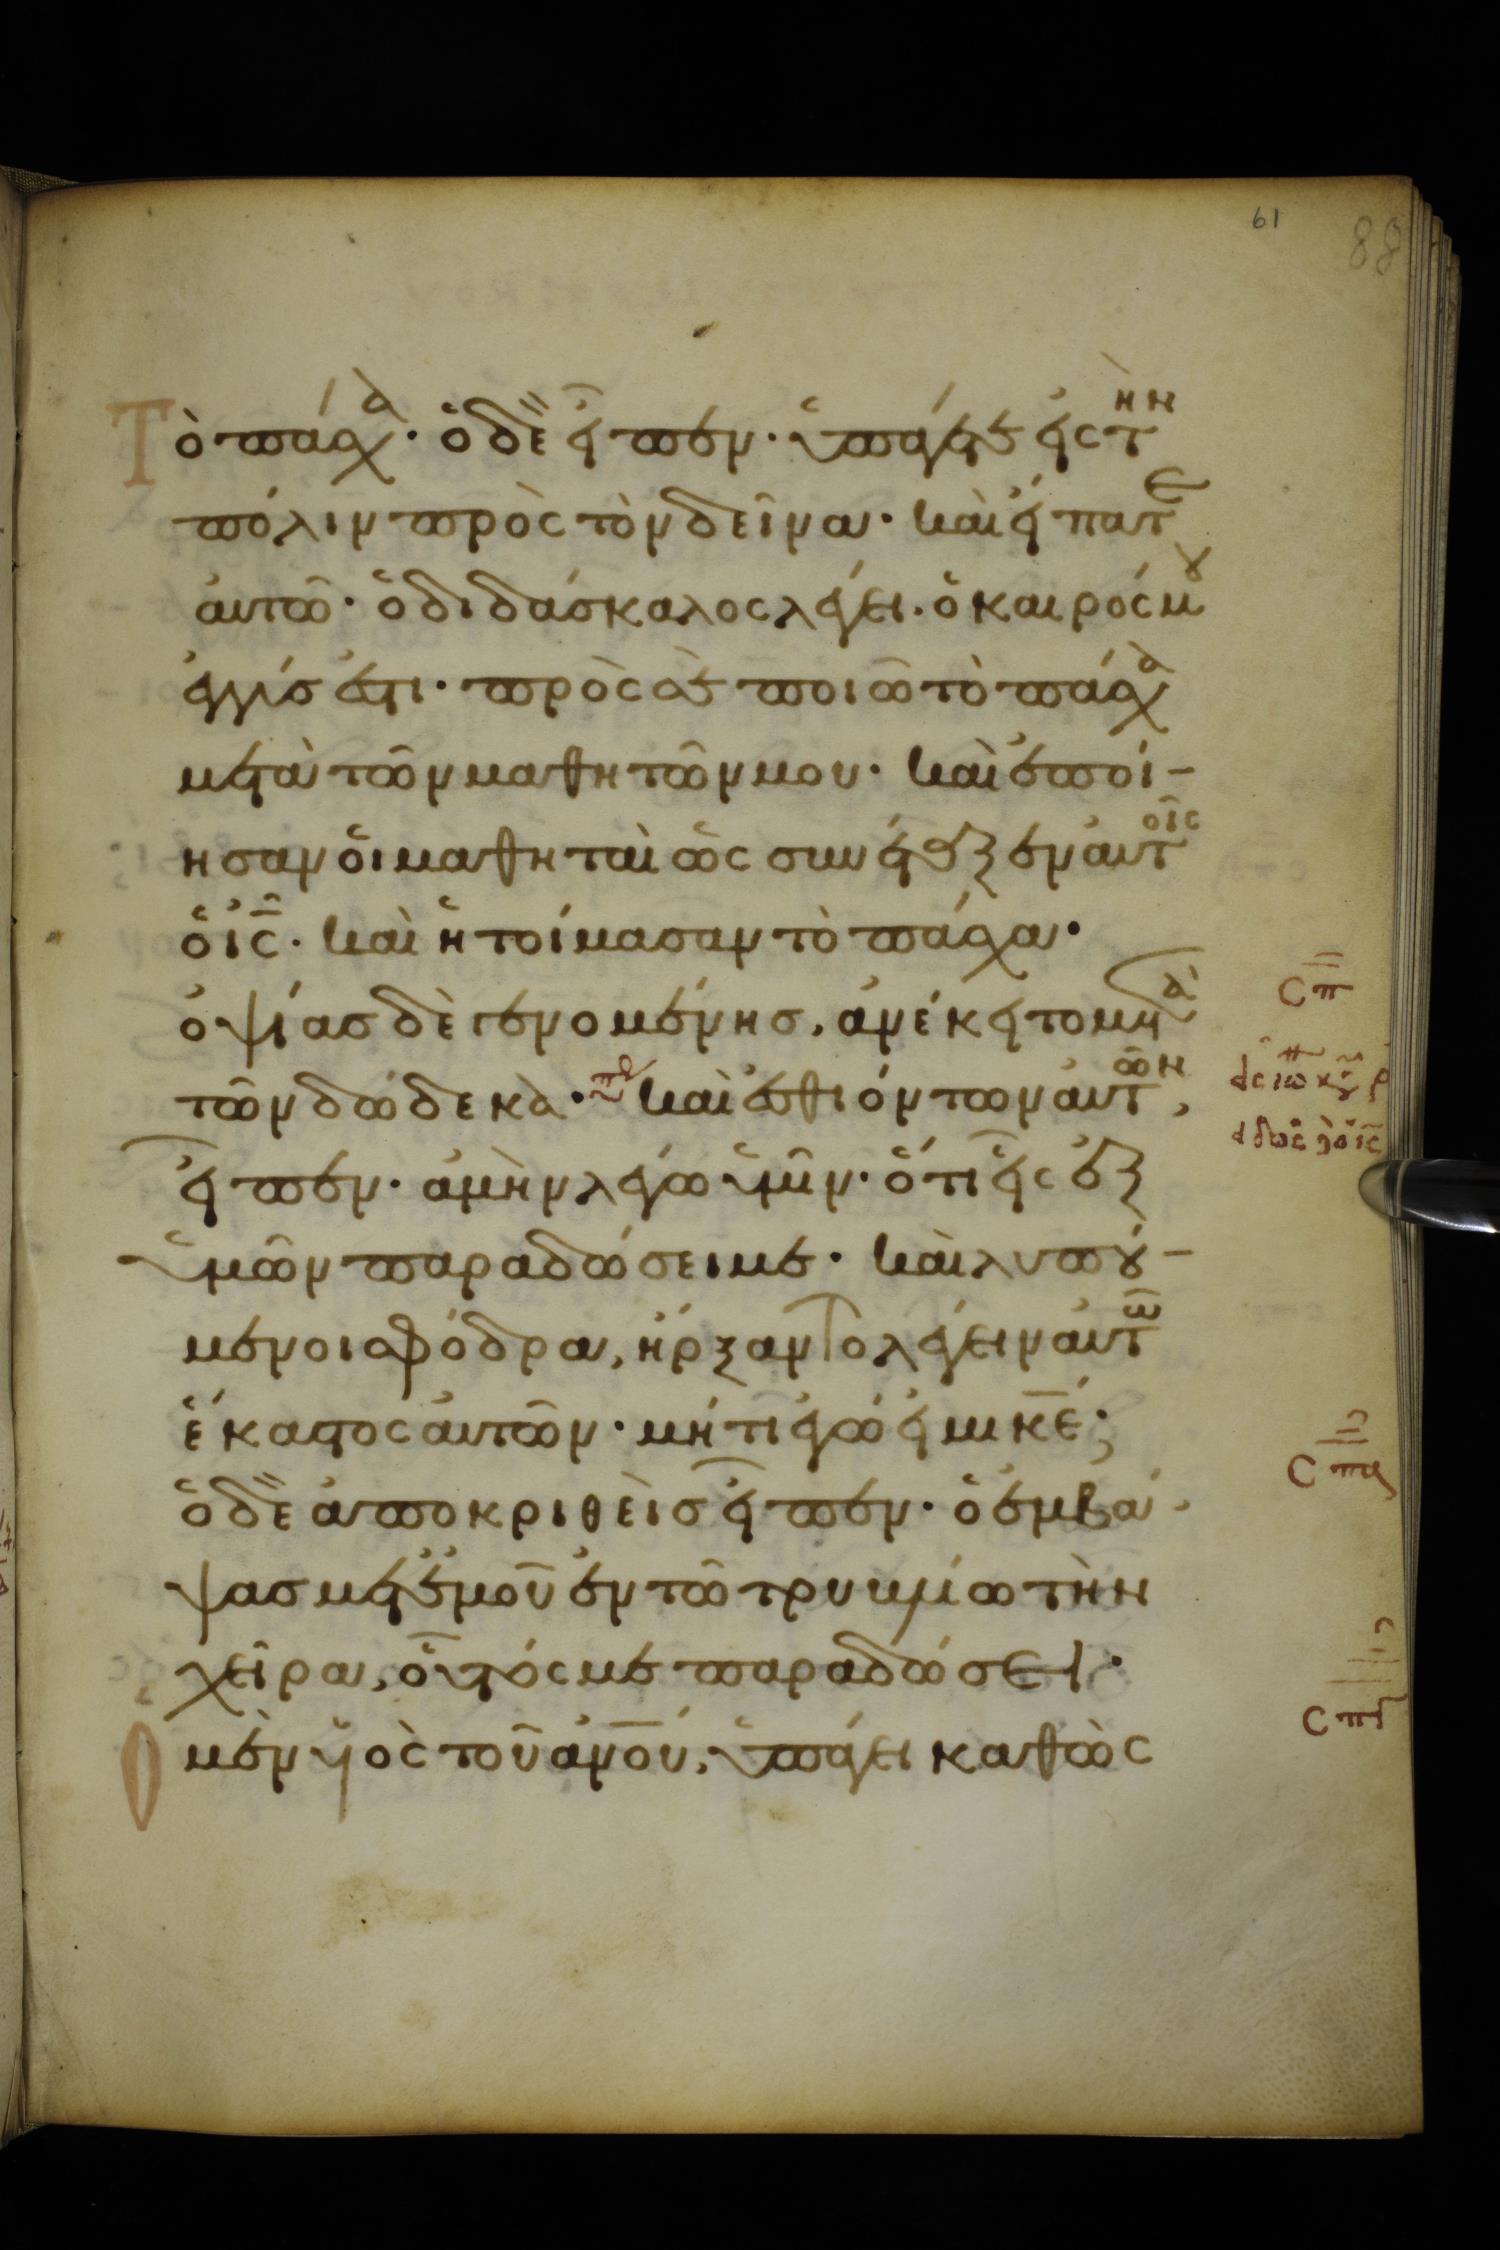 61
88
Τὸ πάσχα· ὁ δὲ εἶπεν· ὑπάγετε εἰς τὴν
πόλιν πρὸς τὸν δεῖνα· καὶ εἴπατε
αὐτῶ· ὁ διδάσκαλος λέγει· ὁ καιρός μου
ἐγγύς ἐστι· πρὸς σὲ ποιῶ τὸ πάσχα
μετὰ τῶν μαθητῶν μου· καὶ ἐποί-
ησαν οἱ μαθηταὶ ὡς συνέταξεν αὐτοῖς
ὁ ἰς̅· καὶ ἡτοίμασαν τὸ πάσχα·
ὀψίας δὲ γενομένης, ἀνέκειτο μετὰ
τῶν δώδεκα· καὶ ἐσθιόντων αὐτῶν,
εἶπεν· ἀμὴν λέγω ὑμῖν· ὅτι εἷς ἐξ
ὑμῶν παραδώσει με· καὶ λυπού-
μενοι σφόδρα, ἤρξαντο λέγειν αὐτῶ
ἕκαστος αὐτῶν· μήτι ἐγώ εἰμι κ̅ε̅;
ὁ δὲ ἀποκριθεὶς εἶπεν· ὁ ἐμβά-
ψας μετ᾽ ἐμοῦ ἐν τῶ τρυβλίω τὴν
χεῖρα, οὗτός με παραδώσει·
Ὁ μὲν υἱὸς τοῦ ἀν̅ου̅, ὑπάγει καθὼς